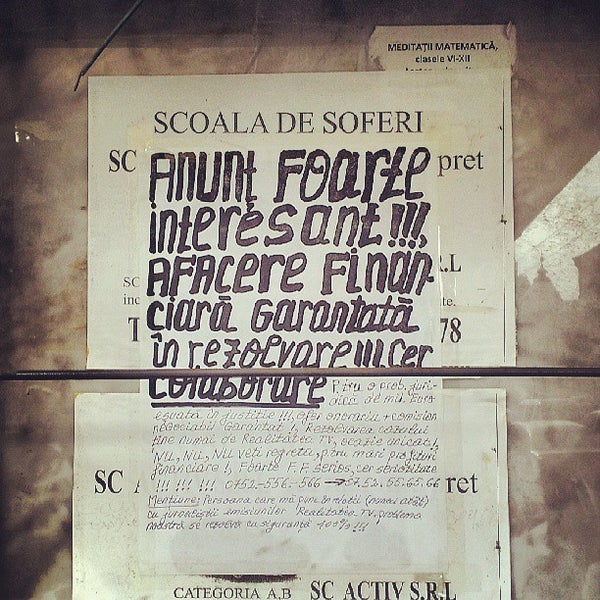 MEDITAȚII MATEMATICĂ,
clasele VI-XII
SCOALA DE SOFERI
SC pret
ANUNȚ FOARTE
interesant!!!,
AFACERE FINAN-
CIARĂ GARANTATĂ
în rezolvare!!!, cer
COLABORARE
ptru o prob. juri-
dică de mil. Euro
eșuată în justiție!!!, ofer onorariu + comision
negociabil garantat!, Rezolvarea cazului
ține numai de Realitatea TV, ocazie unicat!,
NU, NU, NU veți regreta, ptru mari profituri
financiare!, Foarte F. F. serios, cer strictitate
!!! !!! !!! 0752-556-566 → 0752.55.65.66
Mențiune: persoana care mă pune în relații (numai atât)
cu jurnaliștii emisiunilor Realitatea TV, problema
noastră se rezolvă cu siguranță 100%!!!
R.L
78
SC A ret
CATEGORIA A,B SC ACTIV S.R.L